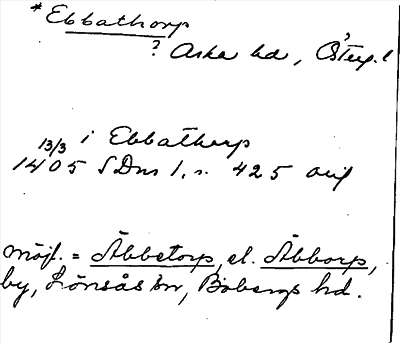 *Ebbathorp
? Aska hd, Österg.l
13/3 i Ebbathorp
1405 SDns 1, s. 425 orig
möjl. = Äbbetorp, el. Äbborp,
by, Lönsås sn, Bobergs hd.